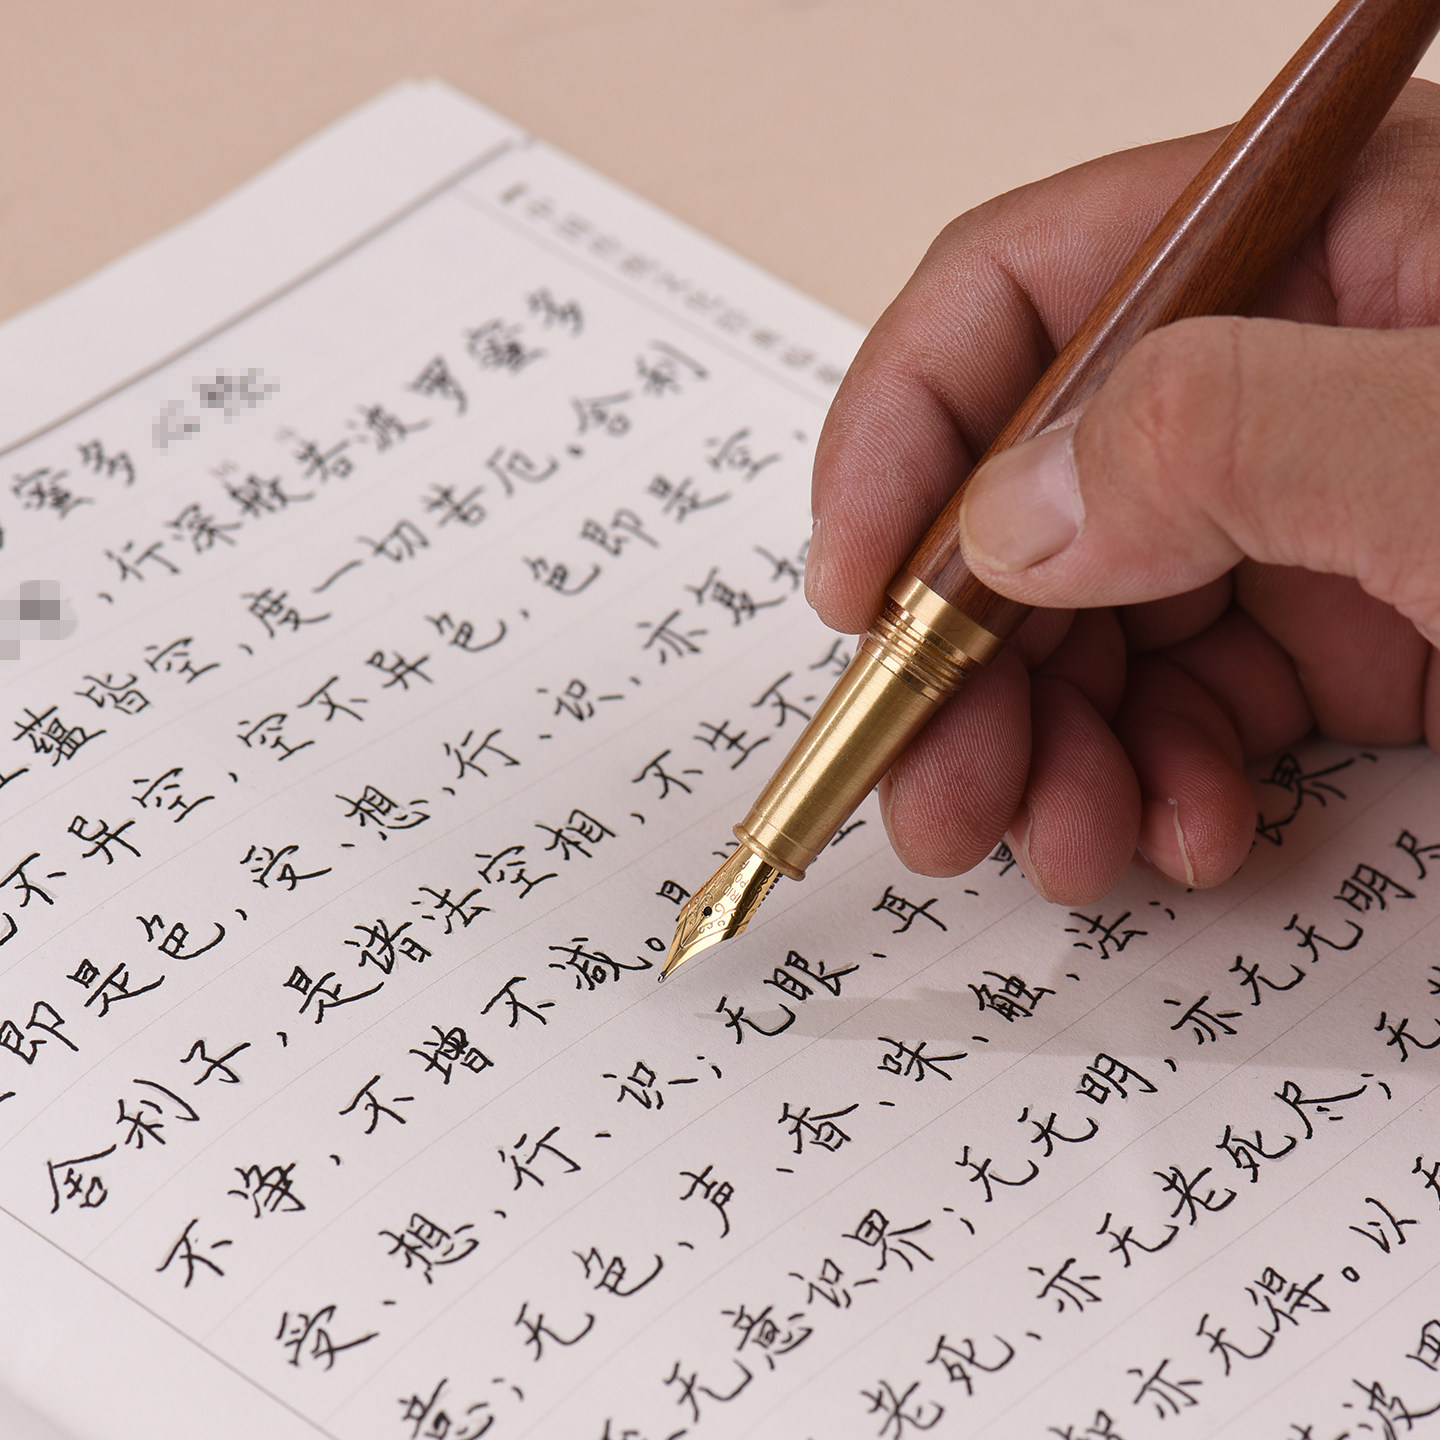 蜜多
,行深般若波罗蜜多
蕴皆空,度一切苦厄。舍利
不异空,空不异色,色即是空,
即是色,受、想、行、识,亦复如
舍利子,是诸法空相,不生不
不净,不增不减。
受、想、行、识;无眼、耳、
意;无色、声、香、味、触、法;界,
无意识界;无无明,亦无无明尽
老死、亦无老死尽;无
亦无得。以
波